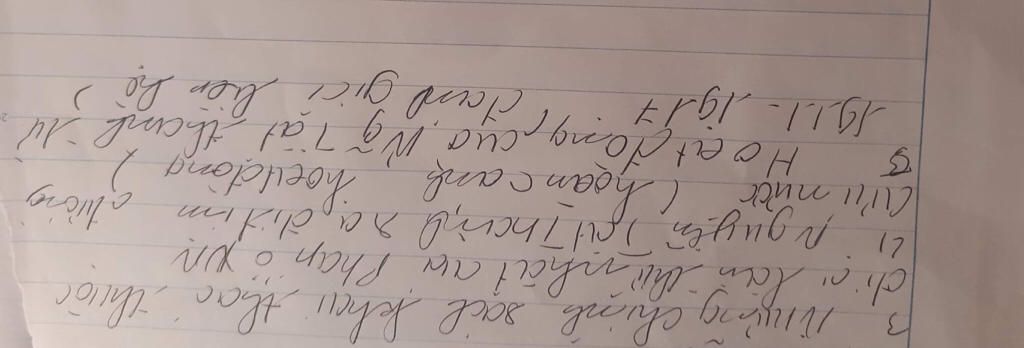 3 Những chính sách khai thác thuộc
địa lần thứ nhất của Pháp ở VN
4 Nguyễn Tất Thành ra đi tìm đường
cứu nước (hoàn cảnh, hoạt động)
5 Hoạt động của Ng Tất Thành từ
1911 - 1917 (đánh giá, liên hệ)